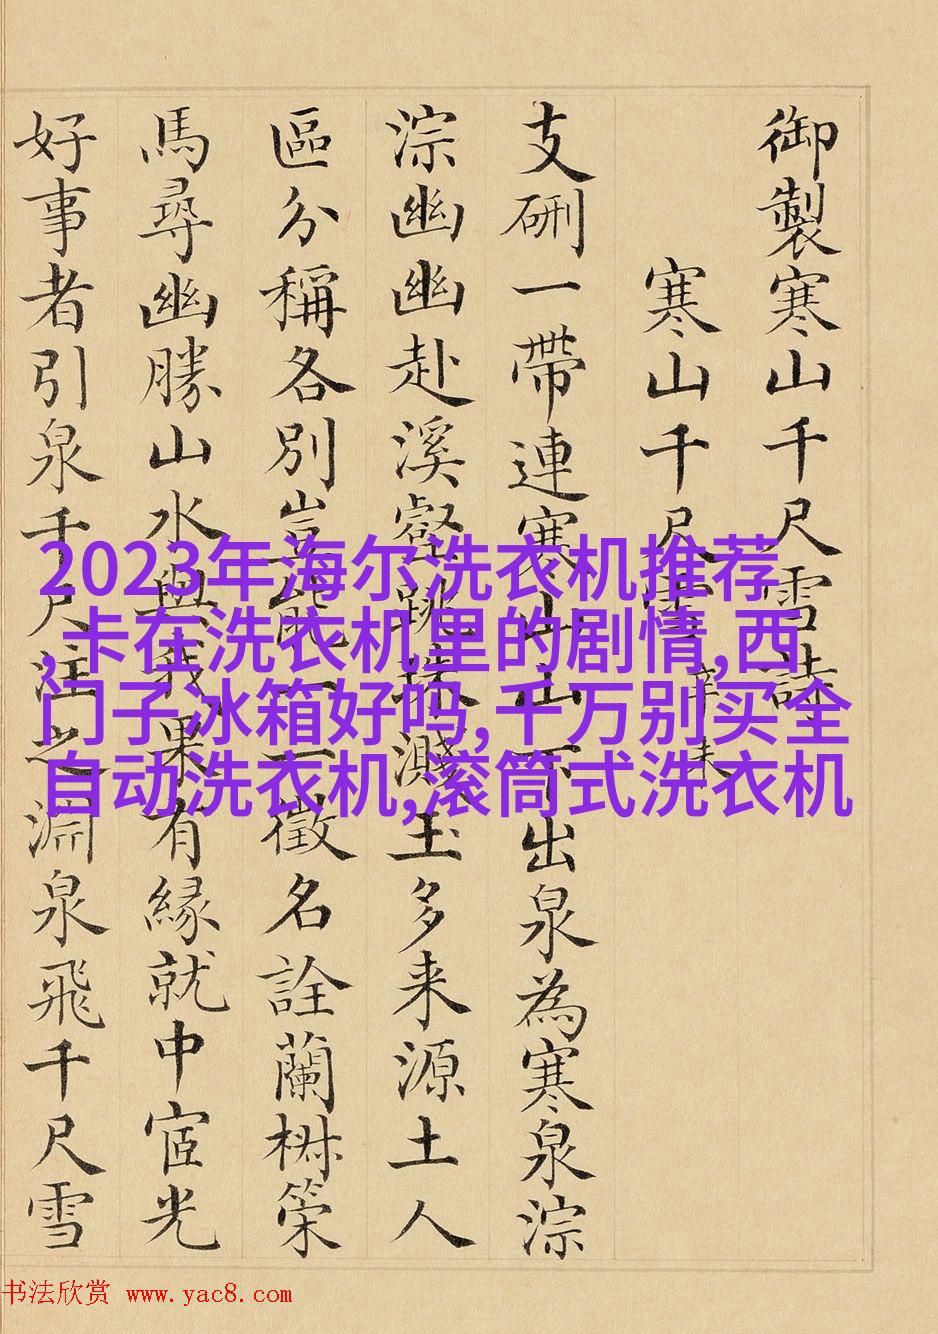 御製寒山千尺雪詩
寒山千尺雪 辛未
支硎一帶連寒山山下出泉為寒泉淙
淙幽幽赴溪壑跳珠濺玉多来源土人
區分稱各別豈能一一徵名詮蘭椒策
馬尋幽勝山水與我果有緣就中宧光
好事者引泉千尺注之淵泉飛千尺雪
2023年海尔洗衣机推荐
,卡在洗衣机里的剧情,西
门子冰箱好吗,千万别买全
自动洗衣机,滚筒式洗衣机
书法欣赏 www.yac8.com